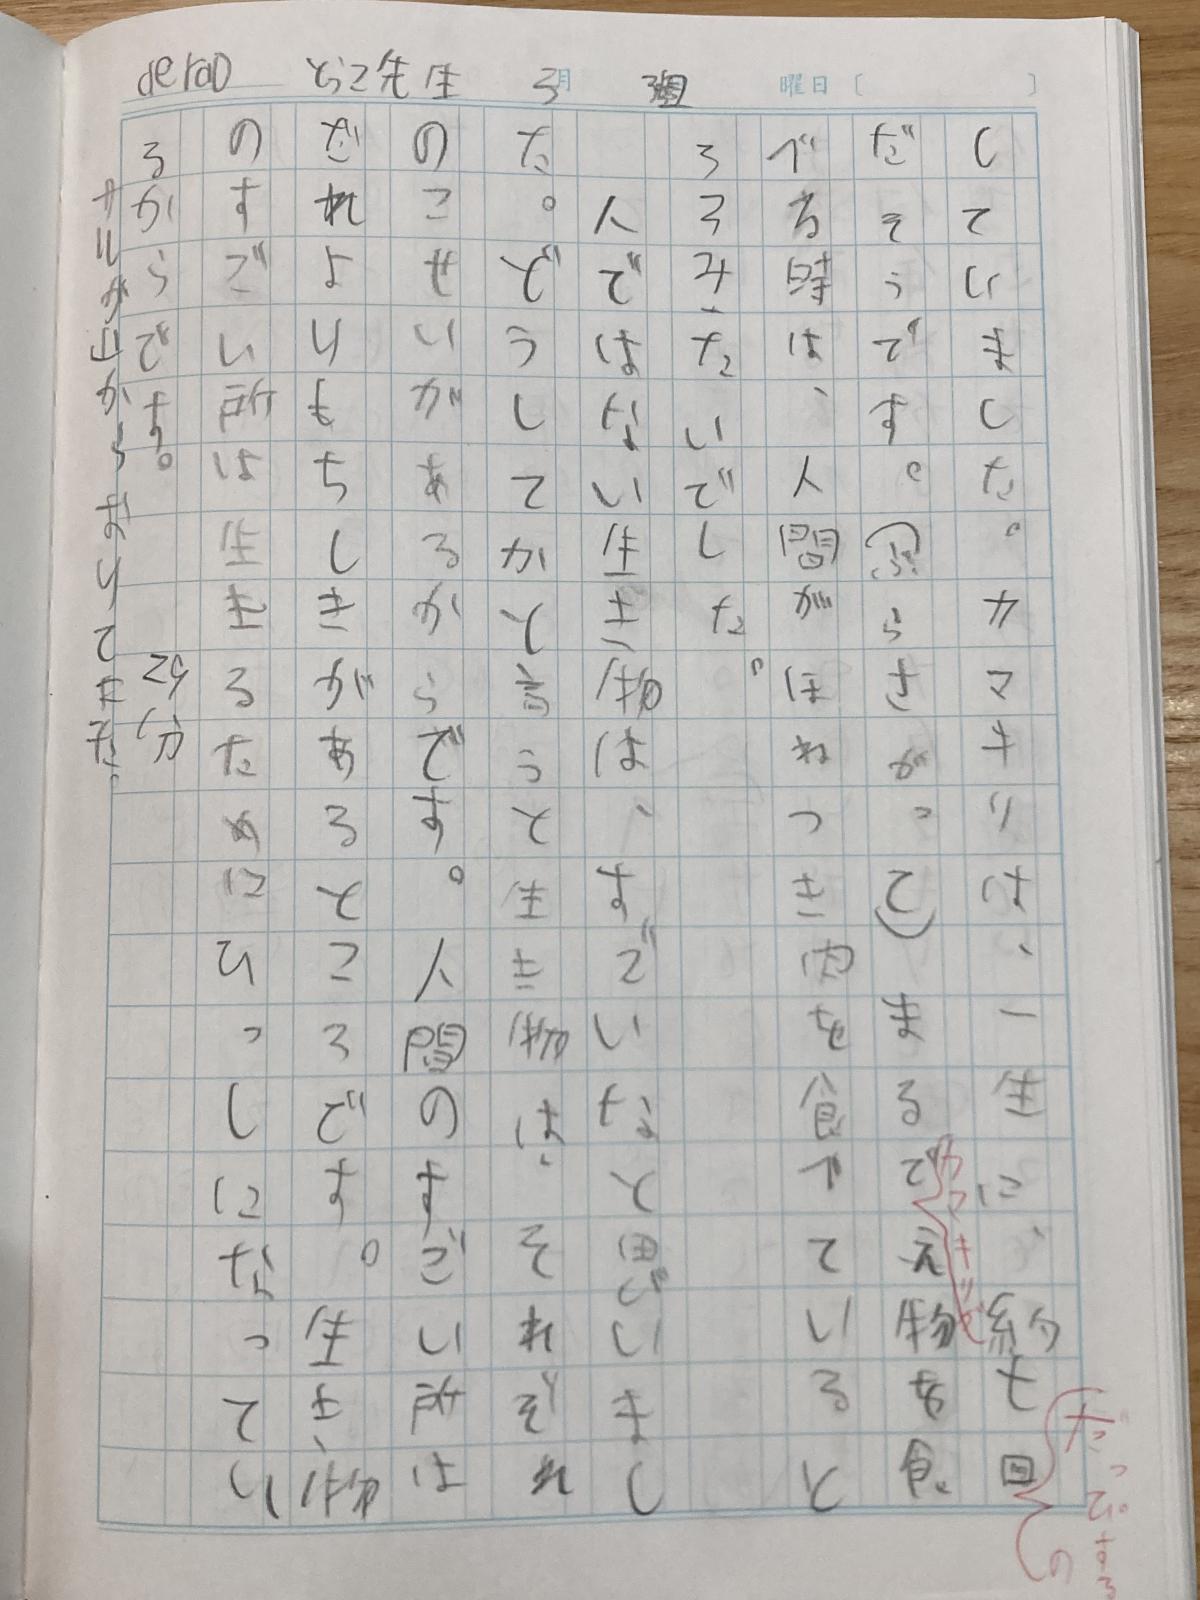 derao とらこ先生 3月 3週 曜日〔 〕
していました。カマキリは、一生に、約七回
だっぴするの
だそうです。(ぶらさがって)まるでえ物を食
カマキリが
べる時は、人間がほねつき肉を食べていると
ろみたいでした。
人ではない生き物は、すごいなと思いまし
た。どうしてかと言うと生き物は、それぞれ
のこせいがあるからです。人間のすごい所は
だれよりもちしきがあるところです。生き物
のすごい所は生きるためにひっしになってい
るからです。
29分
サルが山からおりてきた。